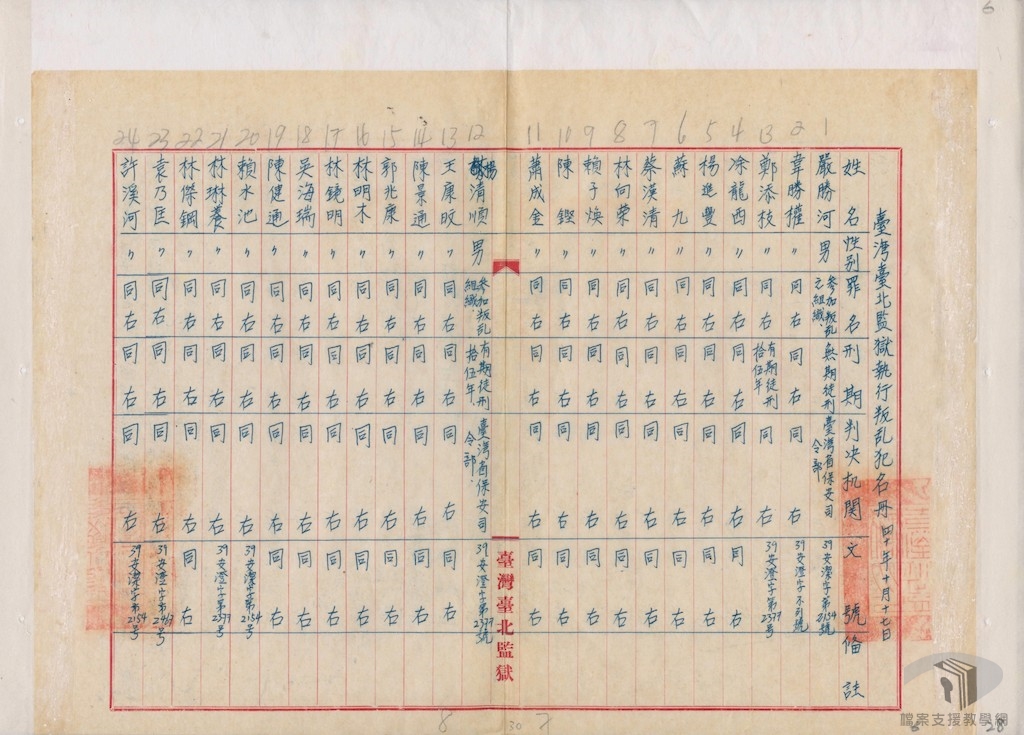 臺灣臺北監獄執行叛乱犯名冊 四十年十月十七日
姓名 性別 罪名 刑期 判決机関 文號 備註
1 嚴勝河 男 參加叛乱之組織、 無期徒刑 臺灣省保安司令部 39安潔字第2154號
2 韋勝權 〃 同右 同右 同右
3 鄭添枝 〃 同右 有期徒刑拾伍年 同右 39安澄字第2379号
4 涂龍西 〃 同右 同右 同右 同右
5 楊進豐 〃 同右 同右 同右 同右
6 蘇九 〃 同右 同右 同右 同右
7 蔡漢清 〃 同右 同右 同右 同右
8 林向榮 〃 同右 同右 同右 同右
9 賴子煥 〃 同右 同右 同右 同右
10 陳鏗 〃 同右 同右 同右 同右
11 蕭成金 〃 同右 同右 同右 同右
臺灣臺北監獄
12 楊清順 男 參加叛乱組織、 有期徒刑拾伍年、 臺灣省保安司令部、 39安澄字第2379號
13 王康旼 〃 同右 同右 同右 同右
14 陳景通 〃 同右 同右 同右 同右
15 郭兆康 〃 同右 同右 同右 同右
16 林明木 〃 同右 同右 同右 同右
17 林鏡明 〃 同右 同右 同右 同右
18 吳海瑞 〃 同右 同右 同右 同右
19 陳健通 〃 同右 同右 同右 同右
20 賴水池 〃 同右 同右 同右 39安潔字第2154号
21 林琳養 〃 同右 同右 同右 39安澄字第2379号
22 林傑鋼 〃 同右 同右 同右 同右
23 袁乃匡 〃 同右 同右 同右
24 許溪河 〃 同右 同右 同右 39安潔字第2154号
6
8
30
7
28
檔案支援教學網